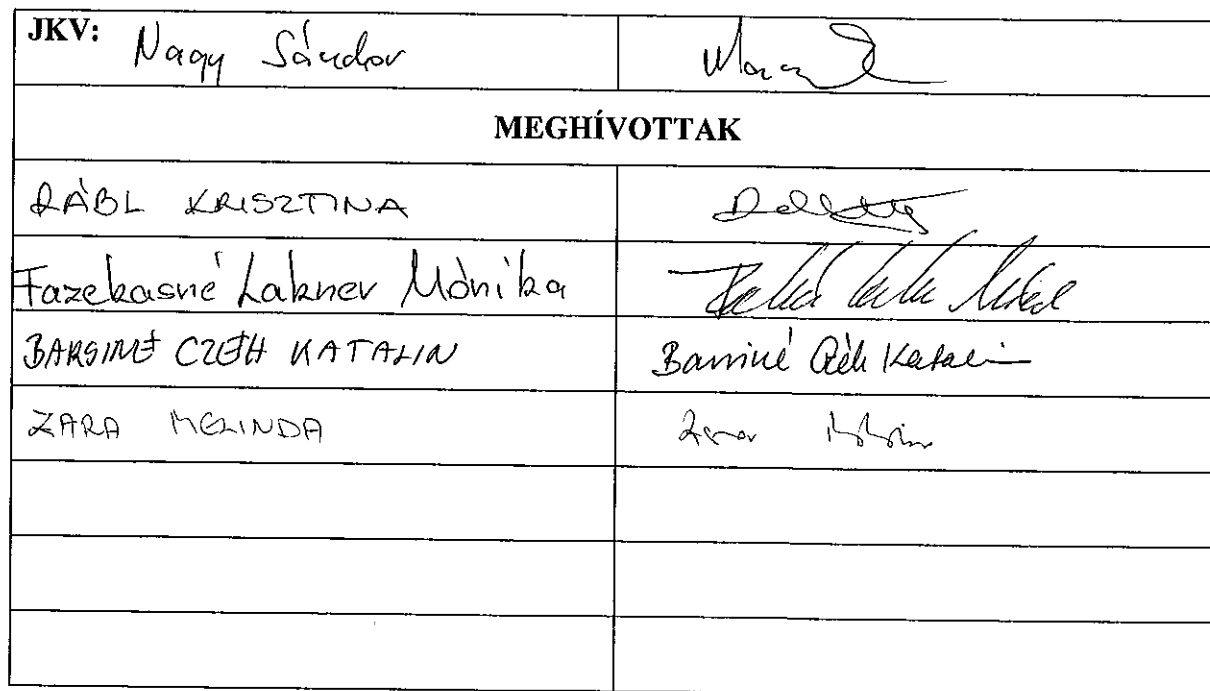 JKV: Nagy Sándor
MEGHÍVOTTAK
RÁBL KRISZTINA
Fazekasné Lakner Mónika
BARSINÉ CZÉH KATALIN Barsiné Czéh Katalin
ZARA MELINDA Zara